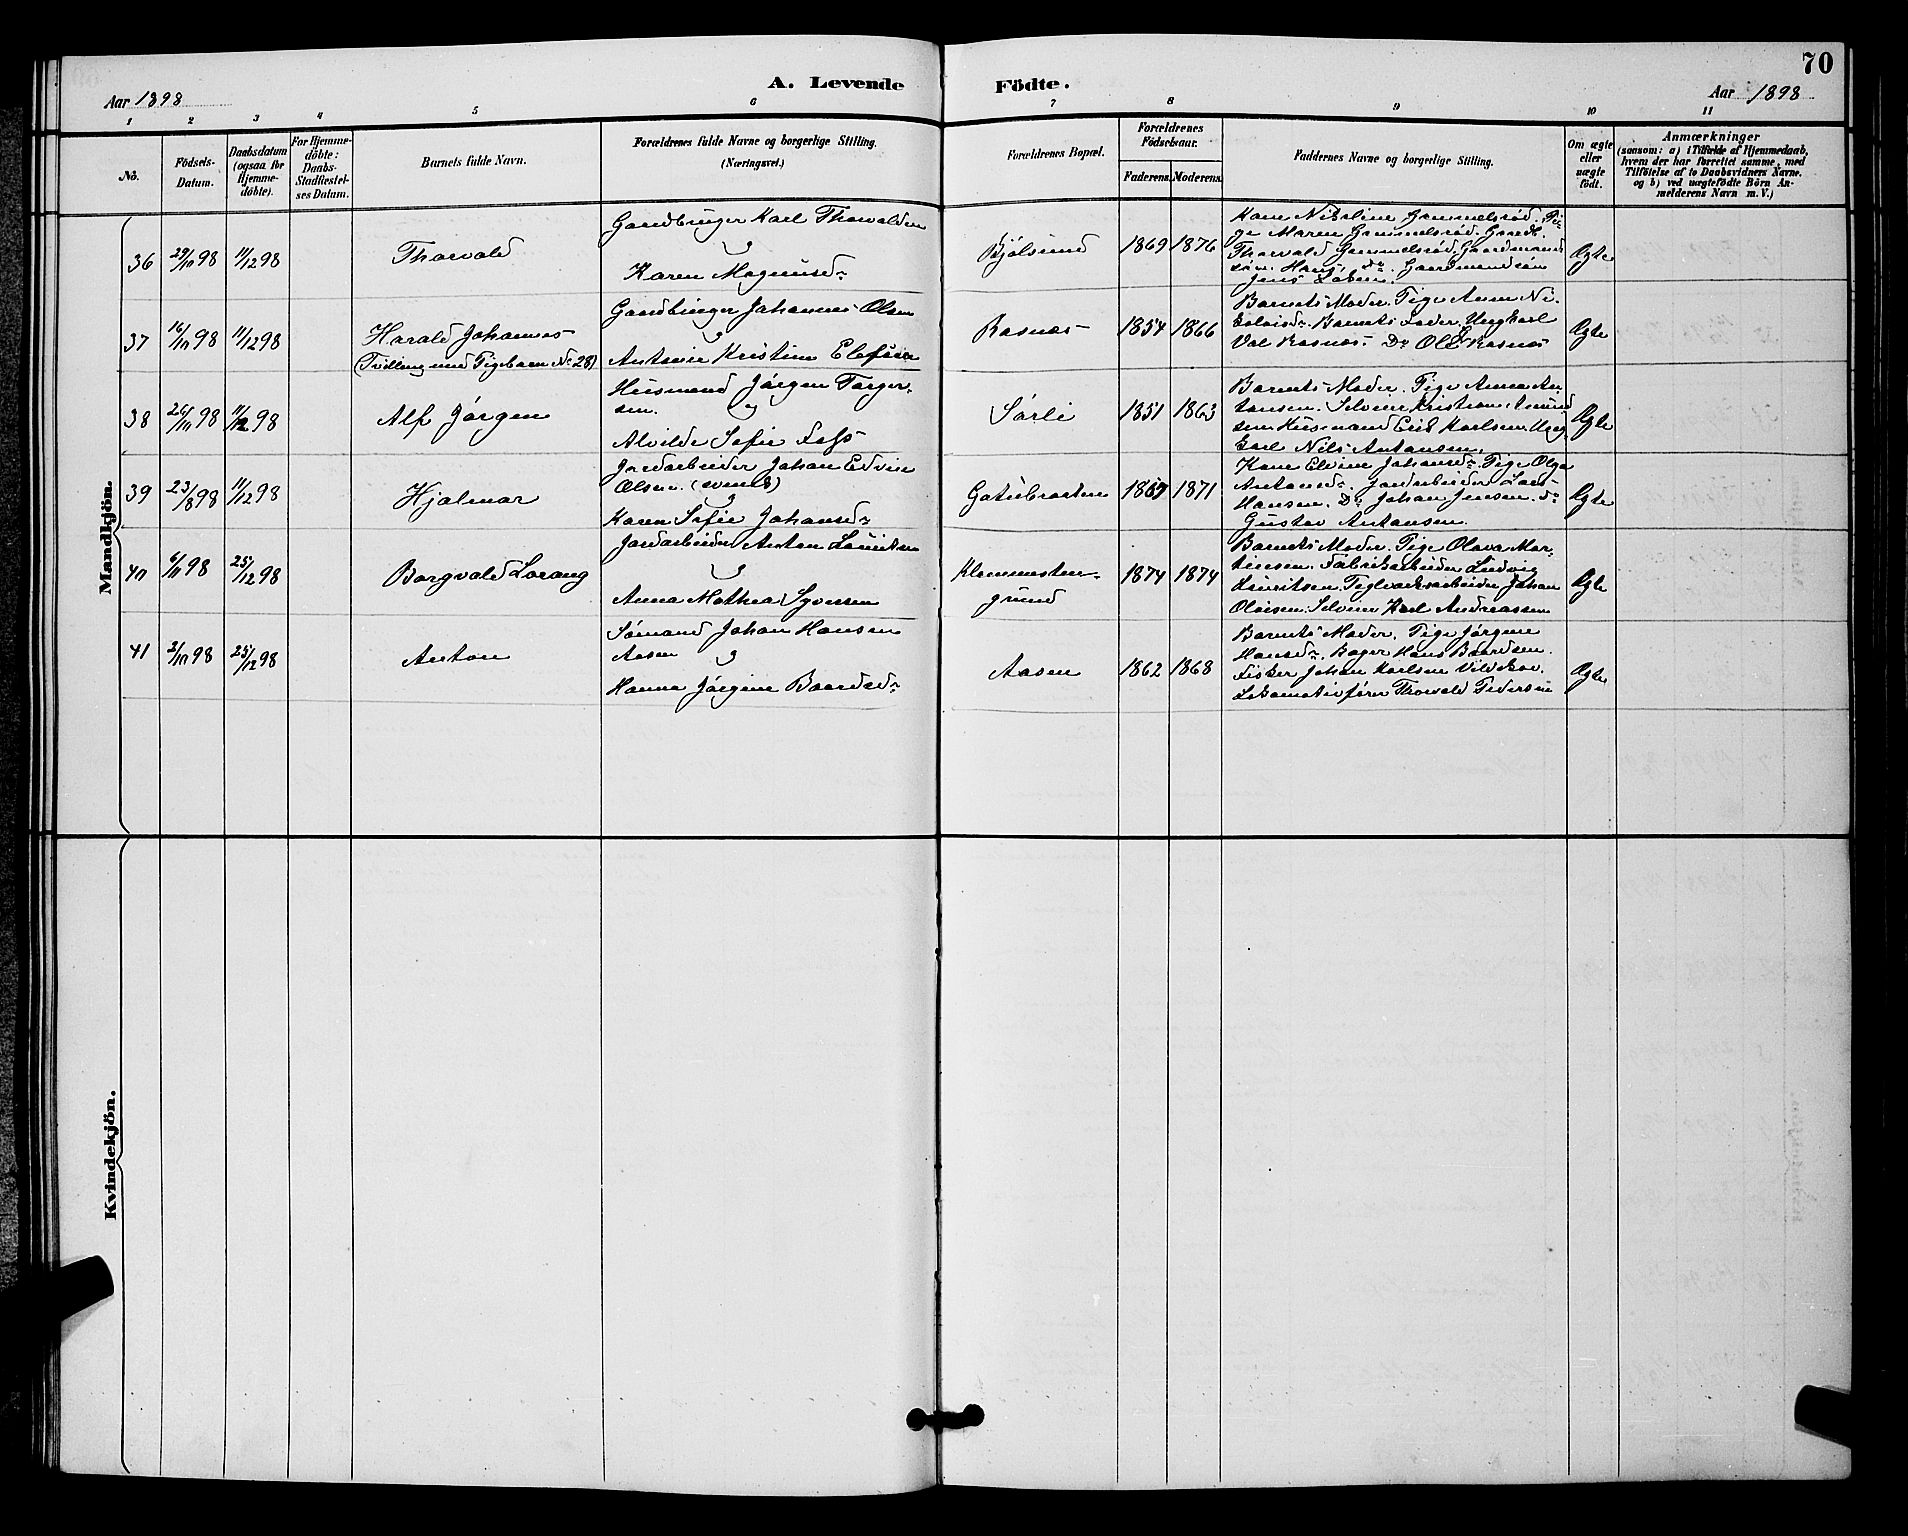 70
A. Levende Födte.
Aar 1898
Aar 1898
1 2 3 4 5 6 7 8 9 10 11
No.
Födsels-Datum.
Daabsdatum (ogsaa for Hjemmedöbte).
For Hjemmedöbte: Daabs-Stadfæstelses Datum.
Barnets fulde Navn.
Forældrenes fulde Navne og borgerlige Stilling.
(Næringsvei.)
Forældrenes Bopæl.
Forældrenes Födselsaar.
Faderens. Moderens.
Faddernes Navne og borgerlige Stilling.
Om ægte eller uægte födt.
Anmærkninger
(saasom: a) i Tilfælde af Hjemmedaab,
hvem der har forrettet samme, med
Tilföielse af to Daabsvidners Navne,
og b) ved uægtefödte Börn An-
melderens Navn m. V.)
Mandkjön.
36 29/10 98 11/12 98 Thorvald
Gaardbruger Karl Thorvaldsen
og
Karen Magnusdr
Bjölsund 1869 1876
Kone Nikoline Gammelsröd. Pi-
ge Maren Gammelsröd. Gaardb.
Thorvald Gammelsröd. Gaardmands
sön Hans do. Gaardmandssön
Jens
Ægte
37 16/10 98 11/12 98 Harald Johannes
(Tvilling med Pigebarn No 28)
Gaardbruger Johannes Olsen
og
Antonie Kristine Elefsen
Rasnæs 1854 1866
Barnets Moder. Pige Anna Ni-
Barnets Fader. Ungkarl
Val Rasnæs. Do Ole Rasnæs
Ægte
38 26/10 98 11/12 98 Alf Jörgen
Husmand Jörgen Torger-
sen. og
Alvilde Sofie Foss
Sörli 1851 1863
Barnets Moder. Pige Anna An-
tonsen. Selveier Kristian Amund
sen. Husmand Erik Karlsen. Ung
karl Nils Antonsen.
Ægte
39 23/8 98 11/12 98 Hjalmar
Jordarbeider Johan Edvin
Olsen. (svensk)
og
Karen Sofie Johansdr
Gatubraaten 1867 1871
Kone Elvine Johansdr. Pige Olga
Antonsdr. Jordarbeider Lars
Hansen. Do Johan Jensen. do
Gustav Antonsen.
Ægte
40 6/11 98 25/12 98 Borgvald Lorang
Jordarbeider Anton Lauritsen
og
Anna Mathea Syversen
Klommesten-
grund
1874 1874
Barnets Moder. Pige Olava Mar-
tinsen. Fabrikarbeider Ludvig
Lauritsen. Teglværksarbeider Johan
Olaisen. Selveier Karl Andreassen
Ægte
41 2/10 98 25/12 98 Anton
Sömand Johan Hansen
Aasen og
Hanna Jörgine Baardsdr
Aasen 1862 1868
Barnets Moder. Pige Jörgine
Hansdr. Bager Hans Baardsen.
Fisker Johan Karlsen Vildskov.
Lokomotivförer Thorvald Pedersen
Ægte
Kvindekjön.